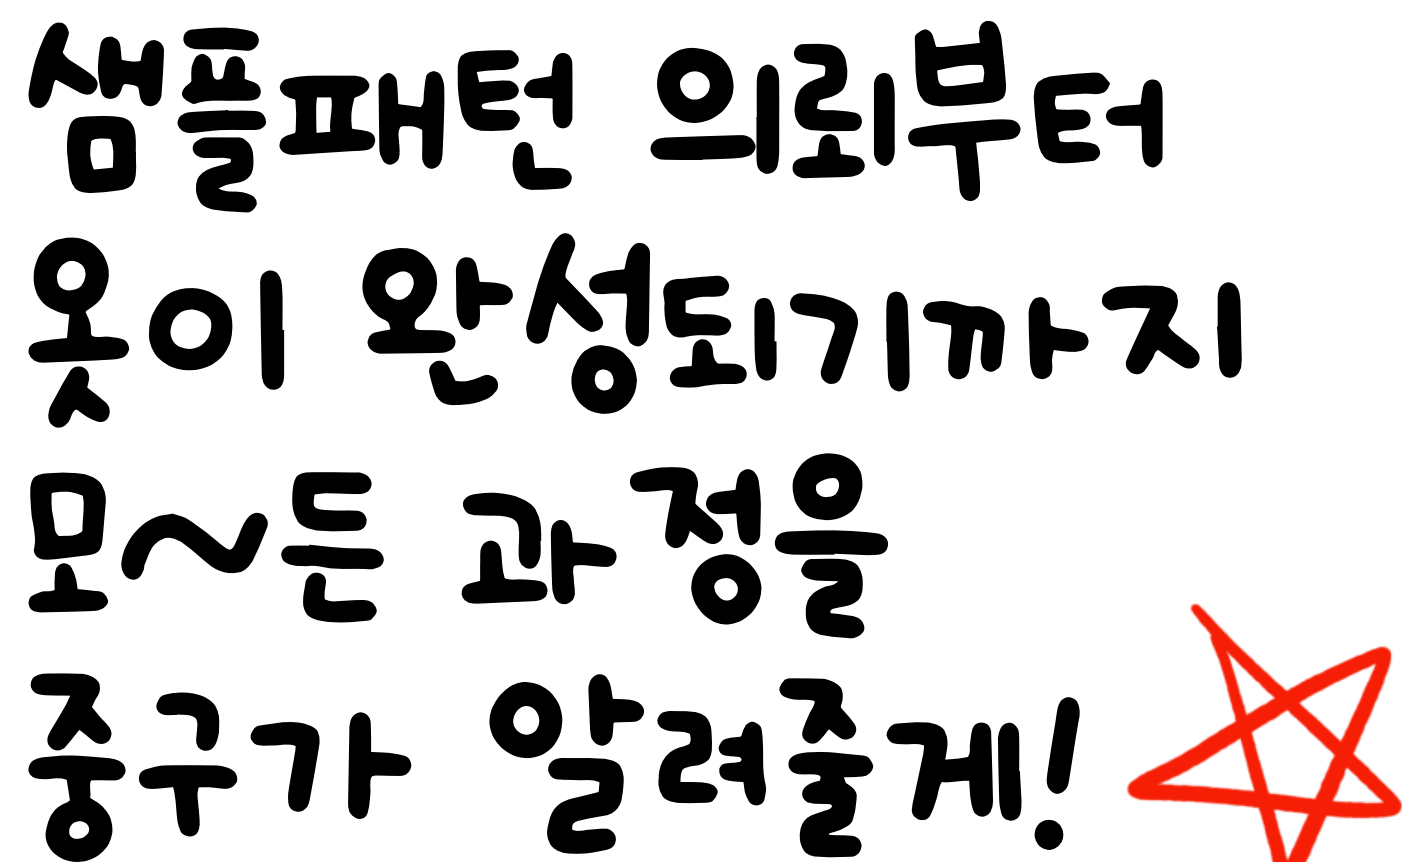 샘플패턴 의뢰부터
옷이 완성되기까지
모~든 과정을
중구가 알려줄게!